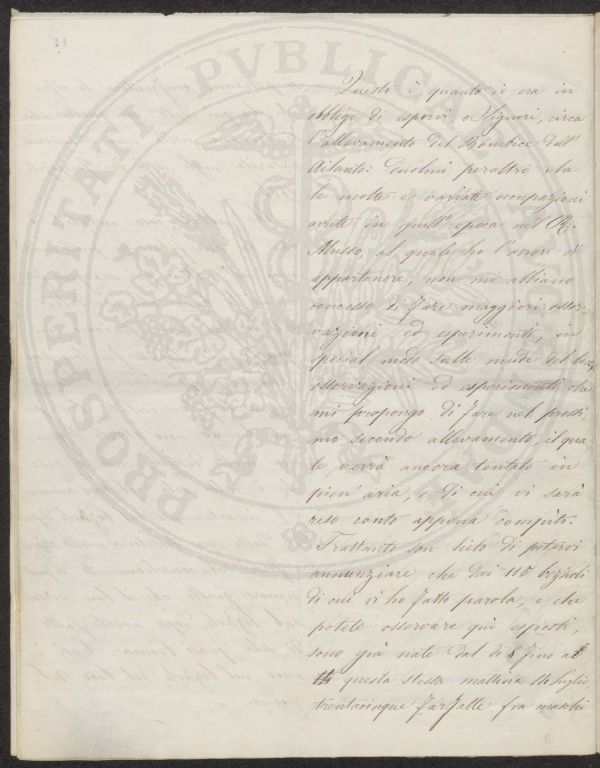 Questo è quanto io era in
obbligo di esporvi, o Signori, circa
l'allevamento del Bombice dell'
Ailanto: duolmi peraltro che
le molte e variate occupazioni
avute in quell'epoca nel R.
Museo, al quale ho l'onore di
appartenere, non mi abbiano
concesso di fare maggiori osser-
vazioni ed esperimenti, in
special modo sulle mude del baco,
osservazioni ed esperimenti che
mi propongo di fare nel prossi-
mo secondo allevamento, il qua-
le verrà ancora tentato in
pien'aria, e di cui vi sarà
reso conto appena compito.
Frattanto son lieto di potervi
annunziare che dai 110 bozzoli
di cui vi ho fatto parola, e che
potete osservare quì esposti,
sono già nate dal dì 8 fino a
questa stessa mattina
trentacinque farfalle fra maschi
PROSPERITATI PVBLICAE